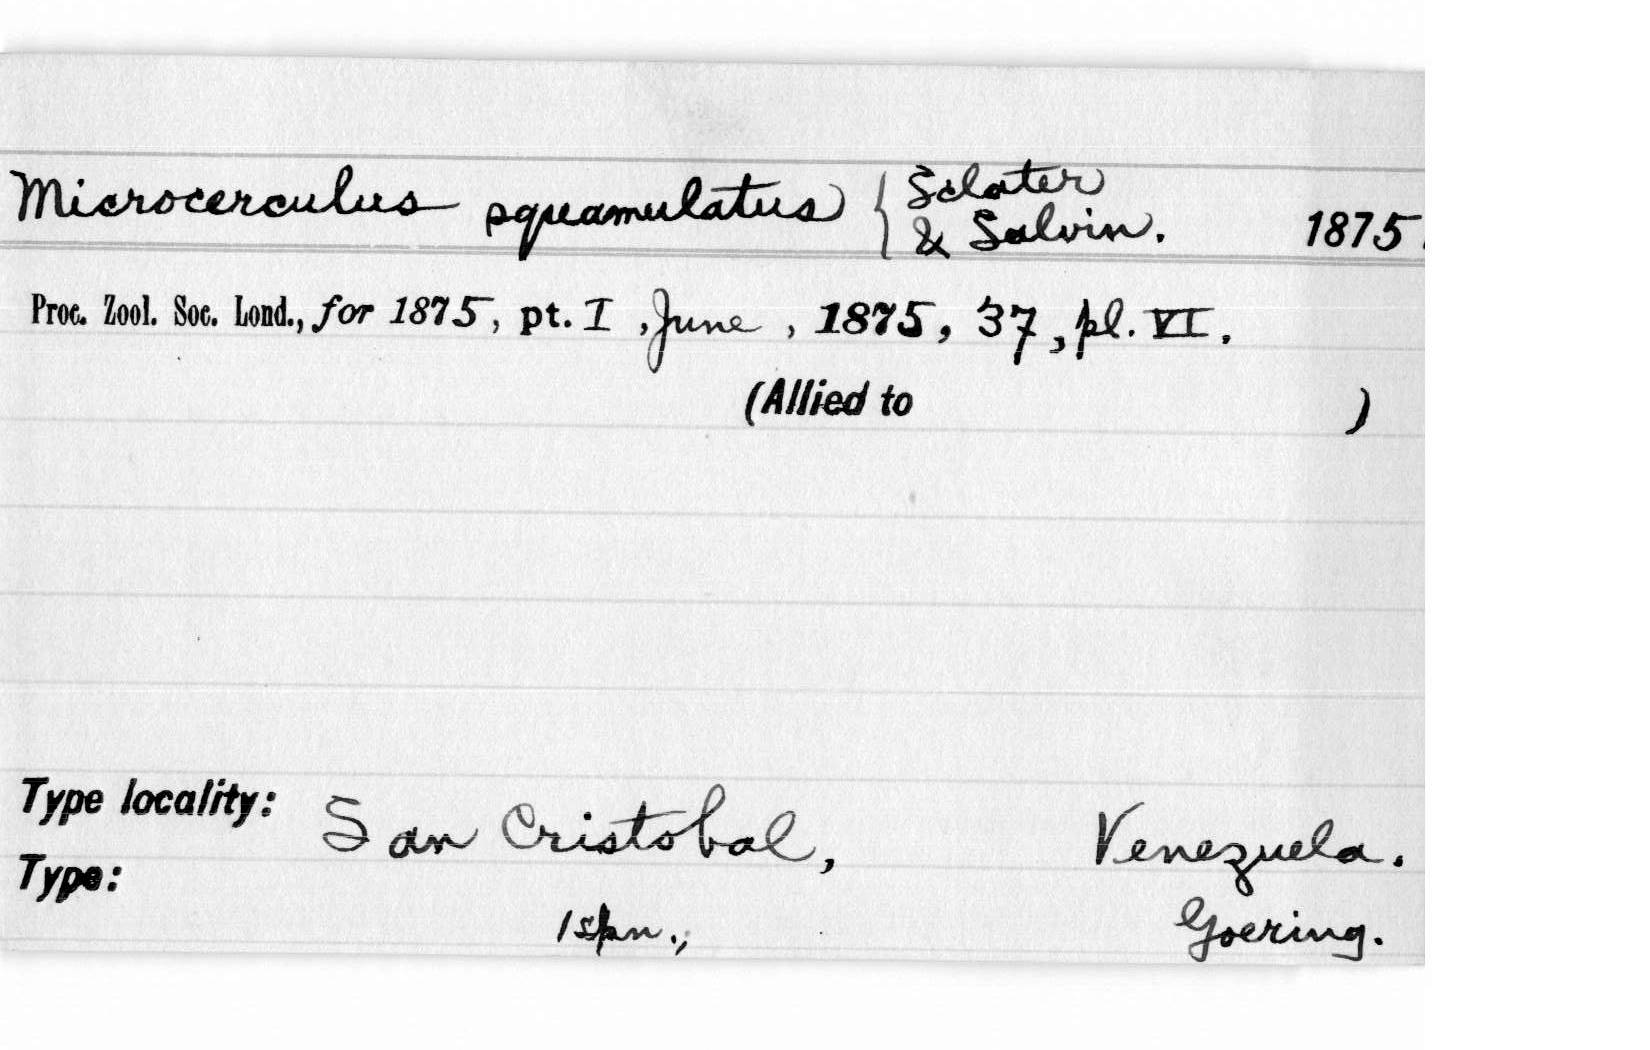 Microcerculus squamulatus { Sclater
& Salvin. 1875.
Proc. Zool. Soc. Lond., for 1875, pt. I, June, 1875, 37, pl. VI.
(Allied to )
Type locality: San Cristobal, Venezuela.
Type: 1 spn., Goering.